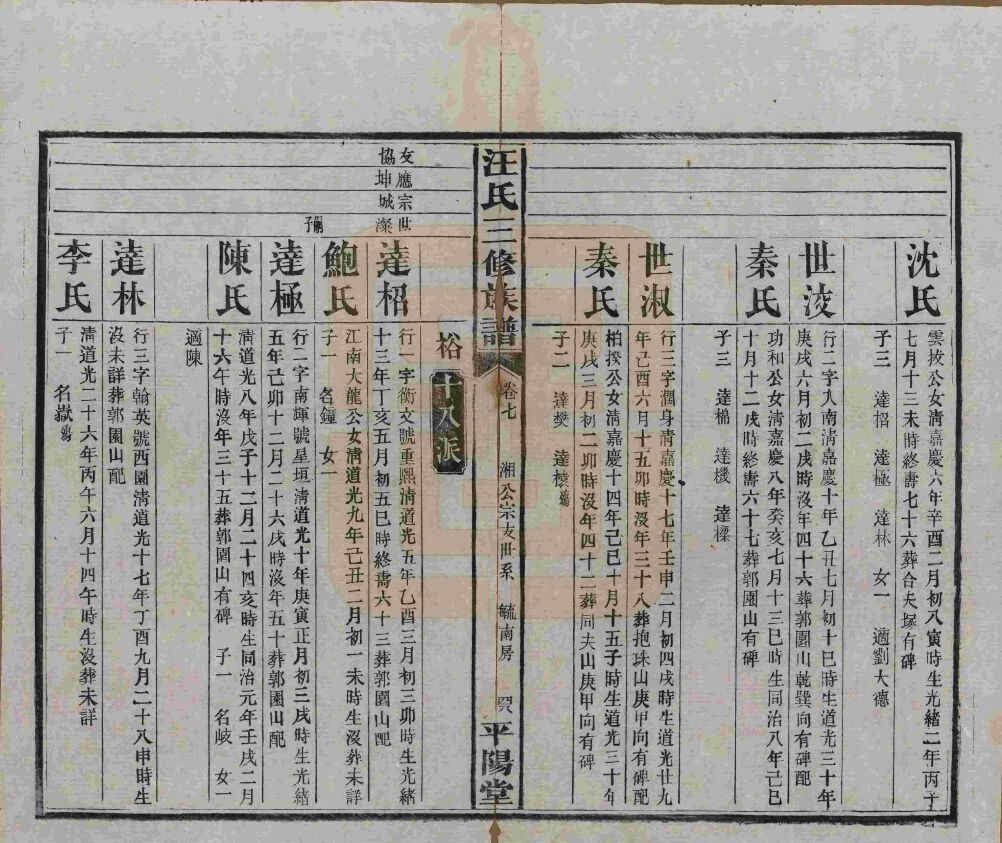 沈氏
雲抜公女清嘉慶六年辛酉二月初八寅時生光緒二年丙子
七月十三未時終壽七十六葬合夫塚有碑
子三 達柖 達極 達林 女一 適劉大德
世淩
行二字人南清嘉慶十年乙丑七月初十巳時生道光三十年
庚戌六月初二戌時沒年四十六葬郭園山乾巽向有碑配
秦氏
功和公女清嘉慶八年癸亥七月十三巳時生同治八年己巳
十月十二戌時終壽六十七葬郭園山有碑
子三 達棉 達機 達樑
世淑
行三字潤身清嘉慶十七年壬申二月初四戌時生道光廿九
年己酉六月十五卯時沒年三十八葬抱珠山庚甲向有碑配
秦氏
柏揆公女清嘉慶十四年己巳十月十五子時生道光三十年
庚戌三月初二卯時沒年四十二葬同夫山庚甲向有碑
子二 達樊 達榱殤
汪氏三修族譜
卷七 湘公宗支世系 毓南房
平陽堂
裕
十八派
友應宗世
協坤城濴
達柖
行一字衡文號重熙清道光五年乙酉三月初三卯時生光緒
十三年丁亥五月初五巳時終壽六十三葬郭園山配
嗣子
鮑氏
江南大龍公女清道光九年己丑二月初一未時生沒葬未詳
子一 名鐘 女一
達極
行二字南輝號星垣清道光十年庚寅正月初三戌時生光緒
五年己卯十二月二十六戌時沒年五十葬郭園山配
陳氏
清道光八年戊子十二月二十四亥時生同治元年壬戌二月
十六午時沒年三十五葬郭園山有碑 子一 名岐 女一
適陳
達林
行三字翰英號西園清道光十七年丁酉九月二十八申時生
沒未詳葬郭園山配
李氏
清道光二十六年丙午六月十四午時生沒葬未詳
子一 名嶽殤